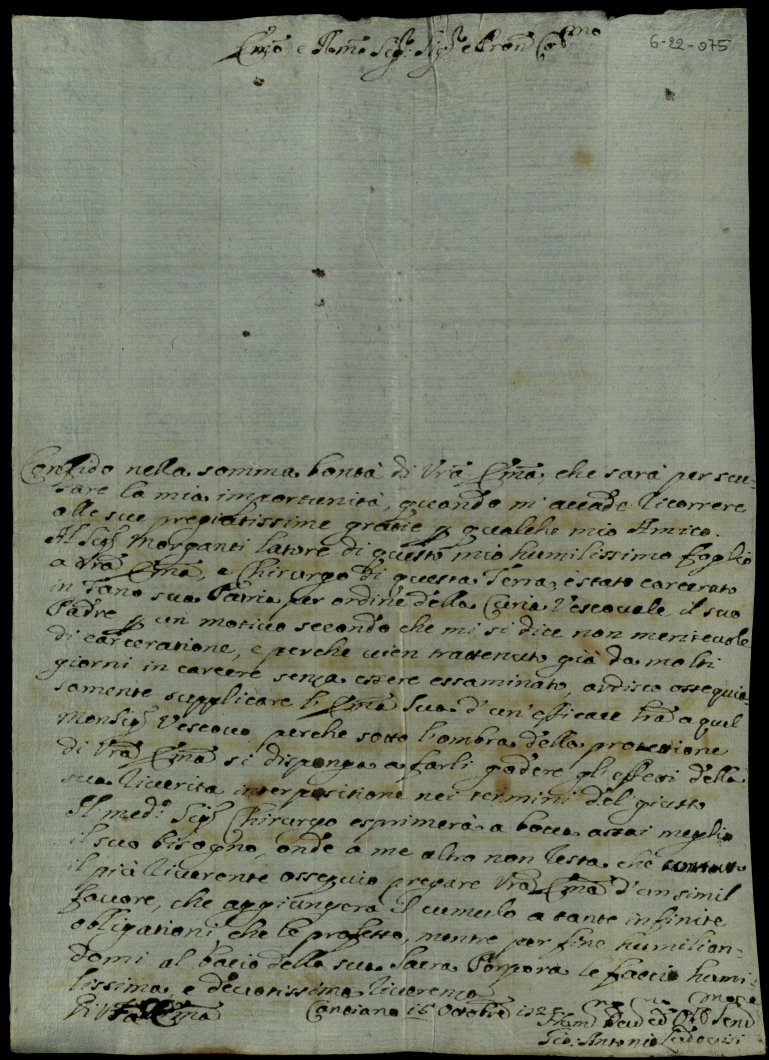 Em̃o e R̃mo Sig.r Sig.r e Pron Col̃mo
6-22-075
Confido nella somma bontà di Vrã Em̃a, che sarà per scu-
sare la mia importunità, quando m'accade ricorrere
alle sue pregiatissime gratie p qualche mio Amico.
Al Sig.r Morganti latore di questo mio humilissimo foglio
a Vrã Em̃a, e Chirurgo di questa Terra, è stato carcerato
in Fano sua Patria per ordine della Curia Vescovale il suo
Padre p un motivo secondo che mi si dice non meritevole
di carceratione, e perche vien trattenuto già da molti
giorni in carcere senza essere essaminato, ardisco ossequio-
samente supplicare l'Em̃a Sua d'un'efficace lrã a quel
Monsig.r Vescovo perche sotto l'ombra della protettione
di Vrã Em̃a si disponga a farli godere gl'effetti della
sua riverita interpositione nei termini del giusto
Il med.o Sig.r Chirurgo esprimerà a bocca assai meglio
il suo bisogno, onde a me altro non resta che
il più riverente ossequio pregare Vrã Em̃a d'un simil
favore, che aggiungerà il cumulo a tante infinite
obligationi che le professo, mentre per fine humilian-
domi al bacio della sua Sacra Porpora le faccio humi-
lissima, e devotissima riverenza
Di V Em̃a Cantiano 16 Octobre
Hum.o Dev.o ed Obl.o Serv.
Gio: Antonio